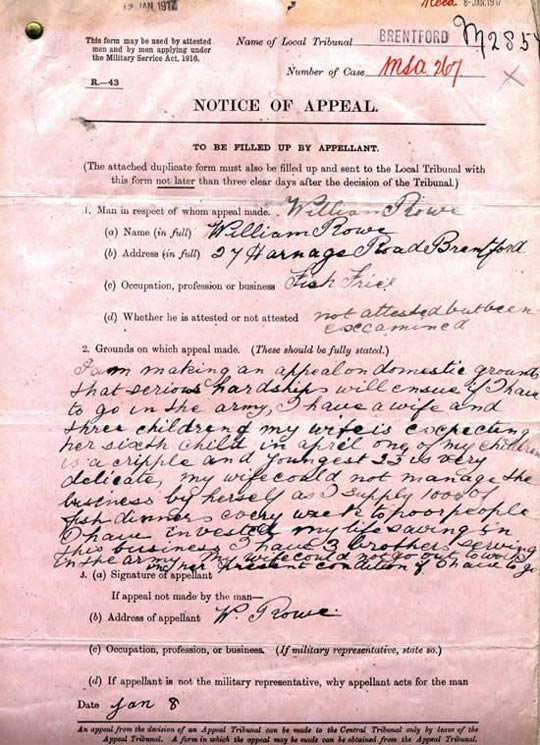 12 JAN 1917
Recd 8-JAN.1917
This form may be used by attested
men and by men applying under
the Military Service Act, 1916.
R.—43
Name of Local Tribunal BRENTFORD
M285
Number of Case MSA 267
X
NOTICE OF APPEAL.
TO BE FILLED UP BY APPELLANT.
(The attached duplicate form must also be filled up and sent to the Local Tribunal with
this form not later than three clear days after the decision of the Tribunal.)
1. Man in respect of whom appeal made. William Rowe
(a) Name (in full) William Rowe
(b) Address (in full) 27 Harnage Road Brentford
(c) Occupation, profession or business Fish Frier
(d) Whether he is attested or not attested not attested but been
exccamined
2. Grounds on which appeal made. (These should be fully stated.)
I am making an appeal on domestic grounds
that serious hardships will ensue if I have
to go in the army, I have a wife and
three children & my wife is excpecting
her sixth child in april one of my children
is a cripple and youngest is very
delicate, my wife could not manage the
business by herself as I supply 1000 of
fish dinners every week to poor people
I have invested my life saving in
this business I have 3 brothers serving
in the army my wife could not go out to work
in her present condition if I have to go
3. (a) Signature of appellant
If appeal not made by the man—
(b) Address of appellant W. Rowe
(c) Occupation, profession, or business. (If military representative, state so.)
(d) If appellant is not the military representative, why appellant acts for the man
Date Jan 8
An appeal from the decision of an Appeal Tribunal can be made to the Central Tribunal only by leave of the
Appeal Tribunal. A form in which the appeal may be made can be obtained from the Appeal Tribunal.